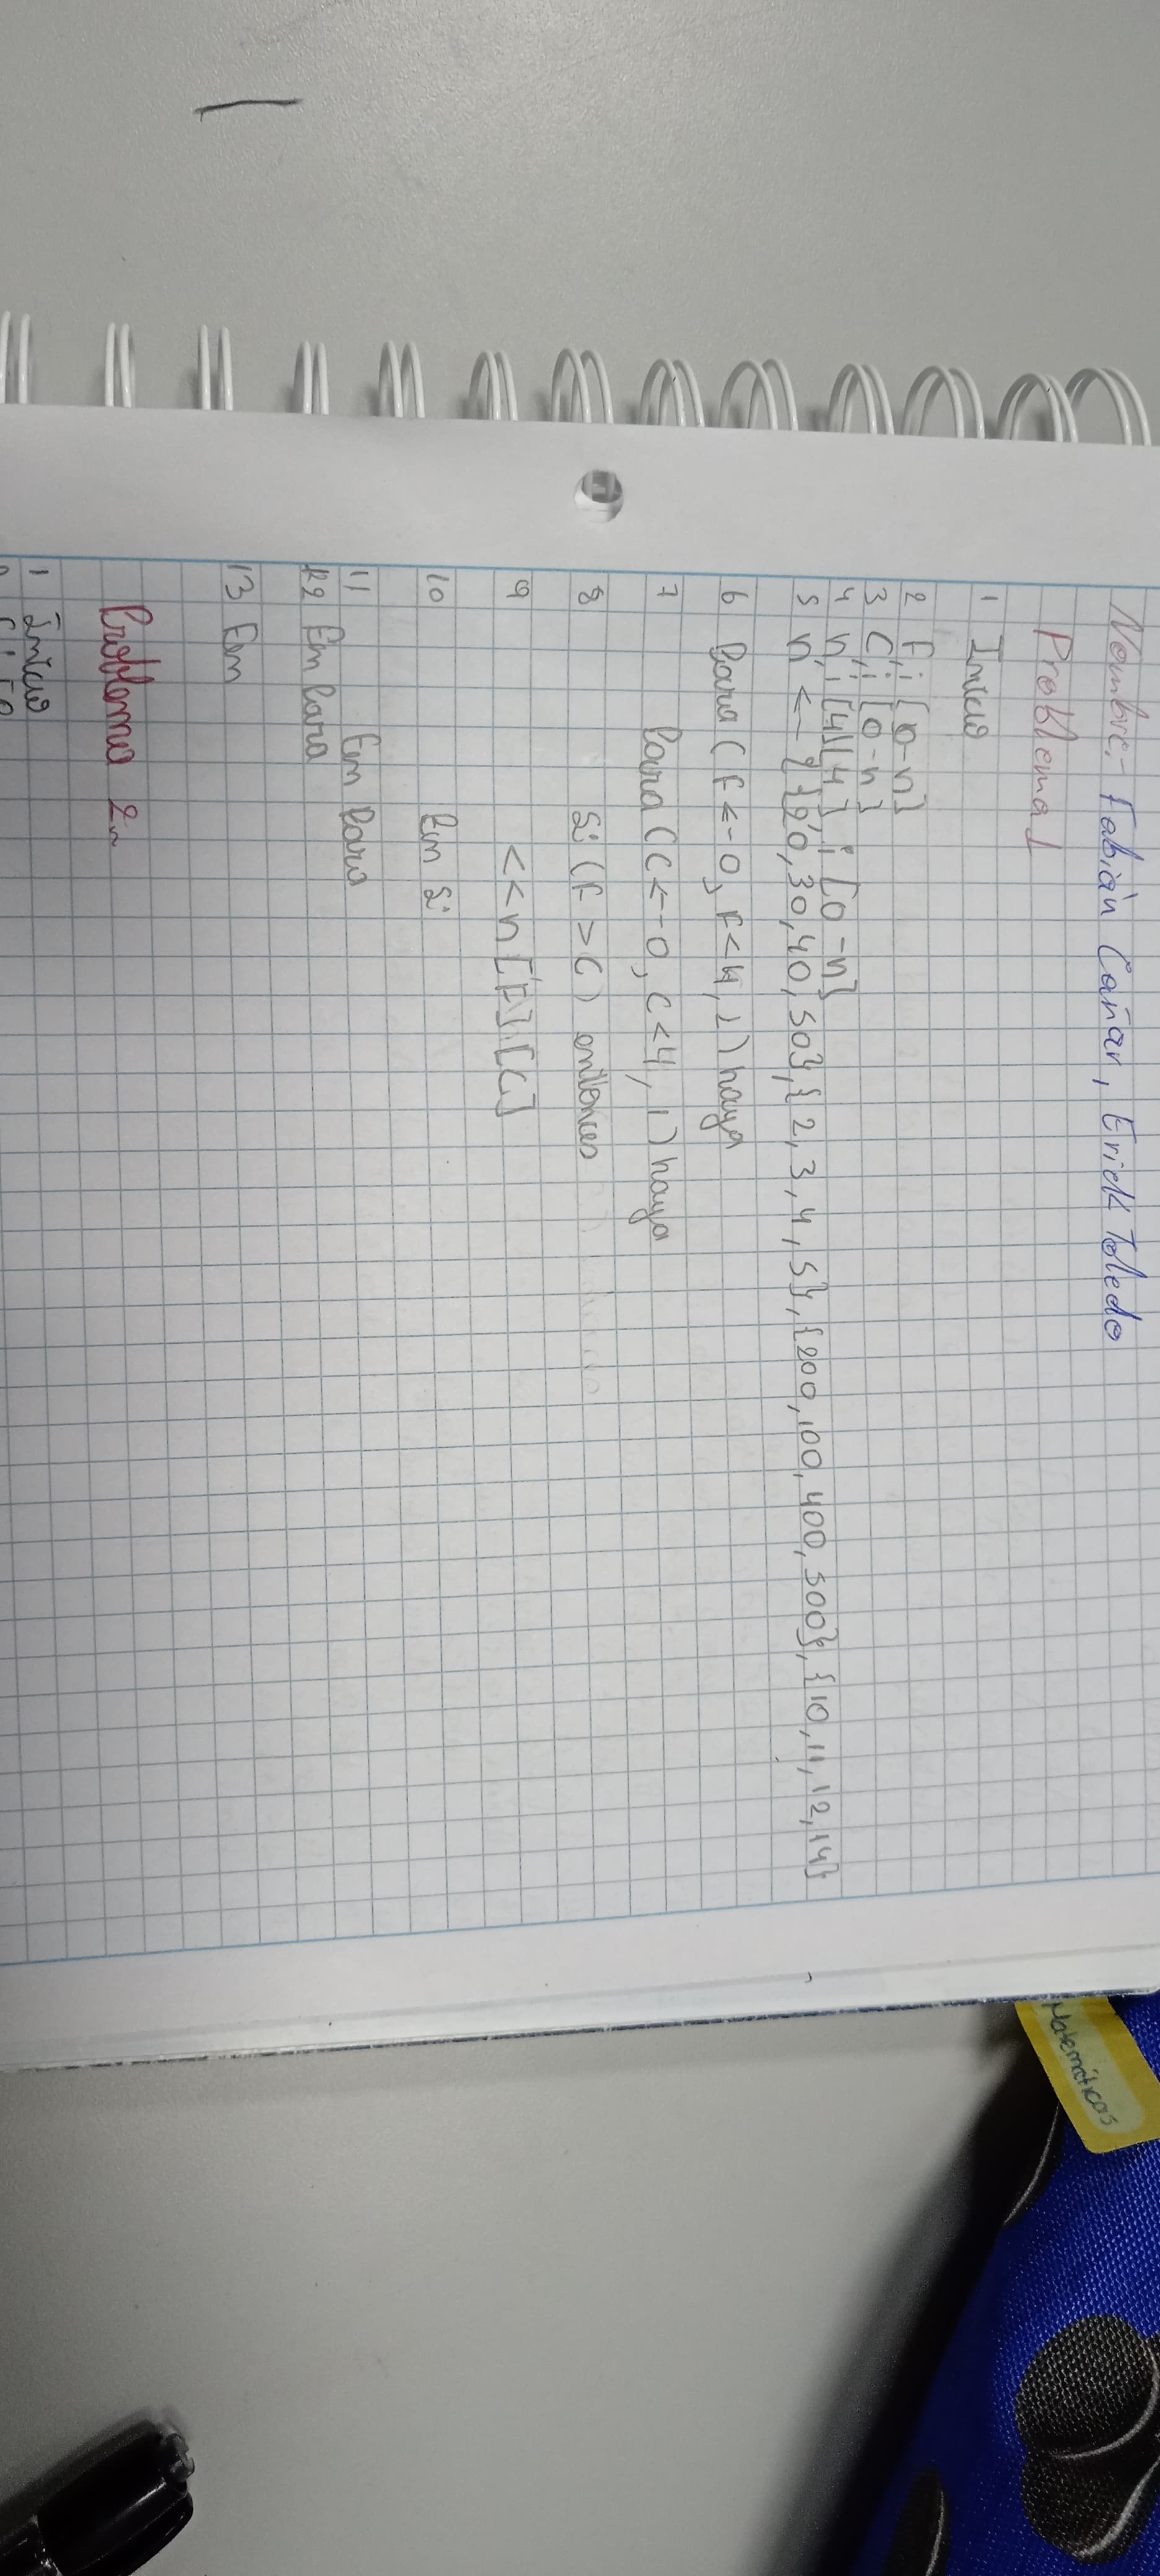 Nombre.- Fabián Cañar, Erick Toledo
Matemáticas
Problema 1
1 Inicio
2 F,i [0-n]
3 C,i [0-n]
4 n,i [4][4], i [0-n]
5 n ← {{20,30,40,50},{2,3,4,5},{200,100,400,500},{10,11,12,14}
6 Para (F←0, F<4, 1) haga
7 Para (C←0, C<4, 1) haga
8 Si (F > C) entonces
9 <<n[F][C]
10 Fin Si
11 Fin Para
12 Fin Para
13 Fin
Problema 2.
1 Inicio